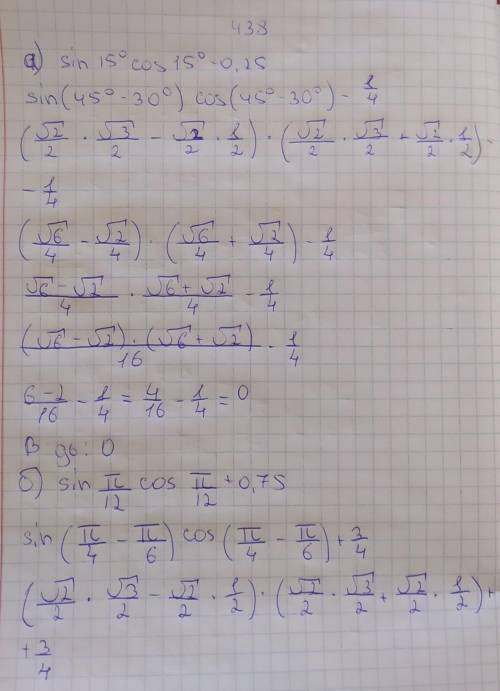 438
а) sin 15° cos 15° - 0,25
sin(45° - 30°) cos(45° - 30°) - 1/4
(√2/2 · √3/2 - √2/2 · 1/2) · (√2/2 · √3/2 + √2/2 · 1/2) -
- 1/4
(√6/4 - √2/4) · (√6/4 + √2/4) - 1/4
(√6 - √2)/4 · (√6 + √2)/4 - 1/4
((√6 - √2) · (√6 + √2))/16 - 1/4
(6 - 2)/16 - 1/4 = 4/16 - 1/4 = 0
В дь: 0
б) sin π/12 cos π/12 + 0,75
sin(π/4 - π/6) cos(π/4 - π/6) + 3/4
(√2/2 · √3/2 - √2/2 · 1/2) · (√2/2 · √3/2 + √2/2 · 1/2) +
+ 3/4